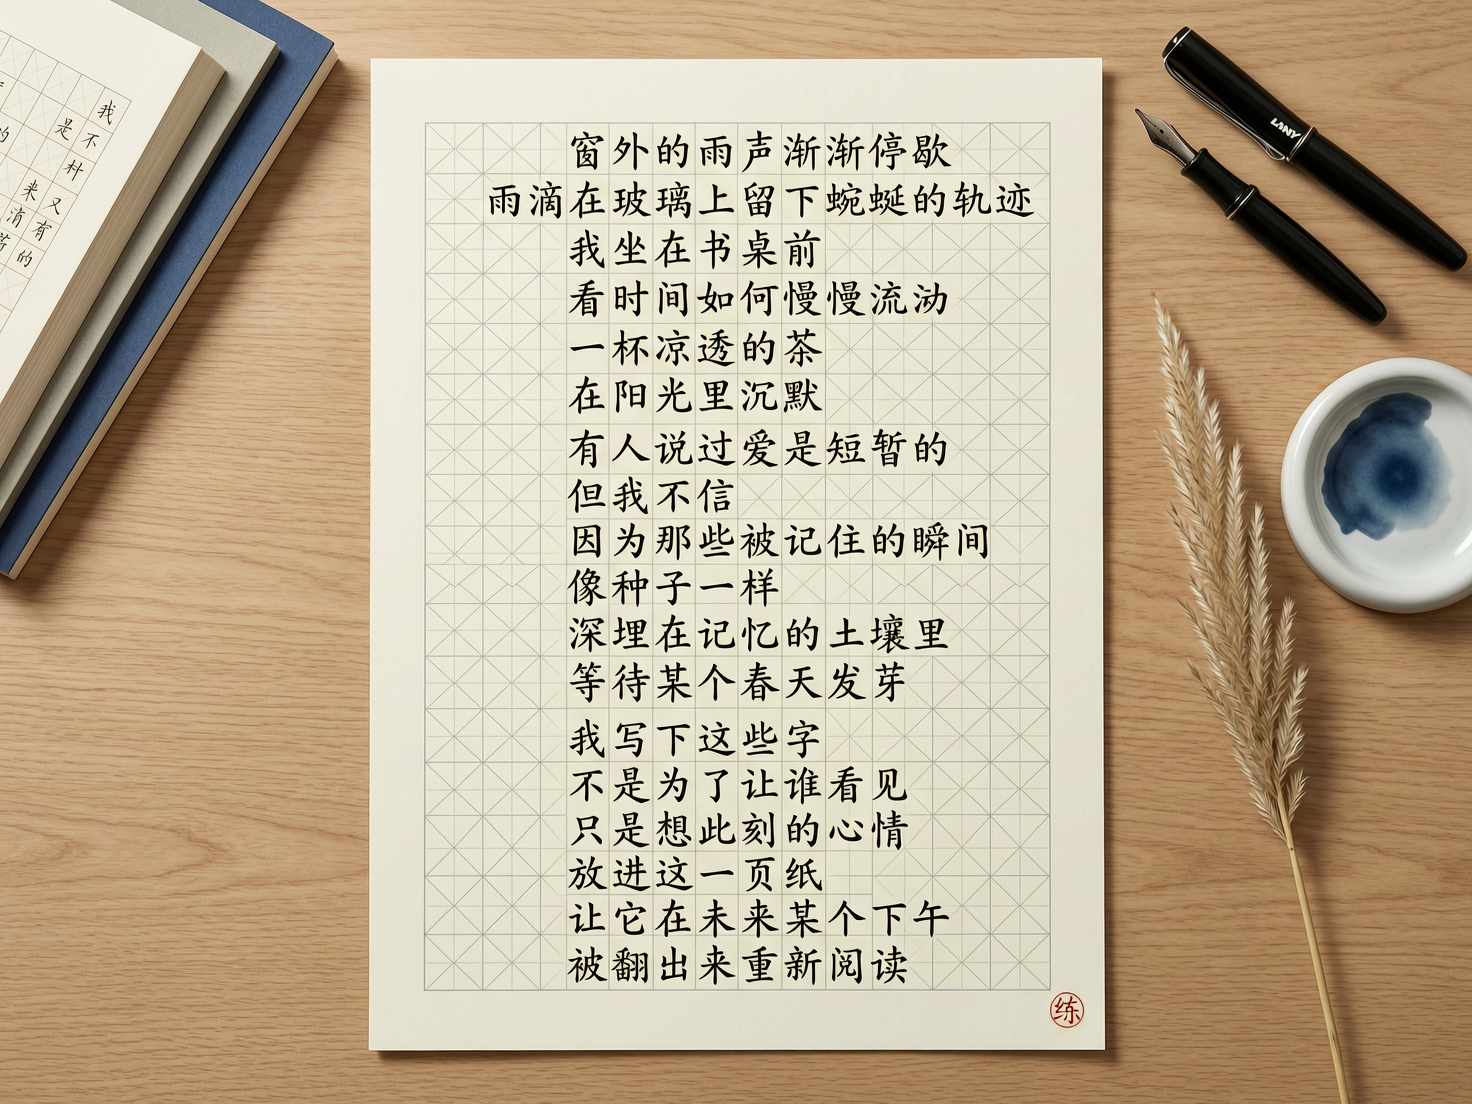 窗外的雨声渐渐停歇
雨滴在玻璃上留下蜿蜒的轨迹
我坐在书桌前
看时间如何慢慢流动
一杯凉透的茶
在阳光里沉默
有人说过爱是短暂的
但我不信
因为那些被记住的瞬间
像种子一样
深埋在记忆的土壤里
等待某个春天发芽
我写下这些字
不是为了让谁看见
只是想此刻的心情
放进这一页纸
让它在未来某个下午
被翻出来重新阅读
练
我
不
是
村
又
来
有
消
的
的
LAMY